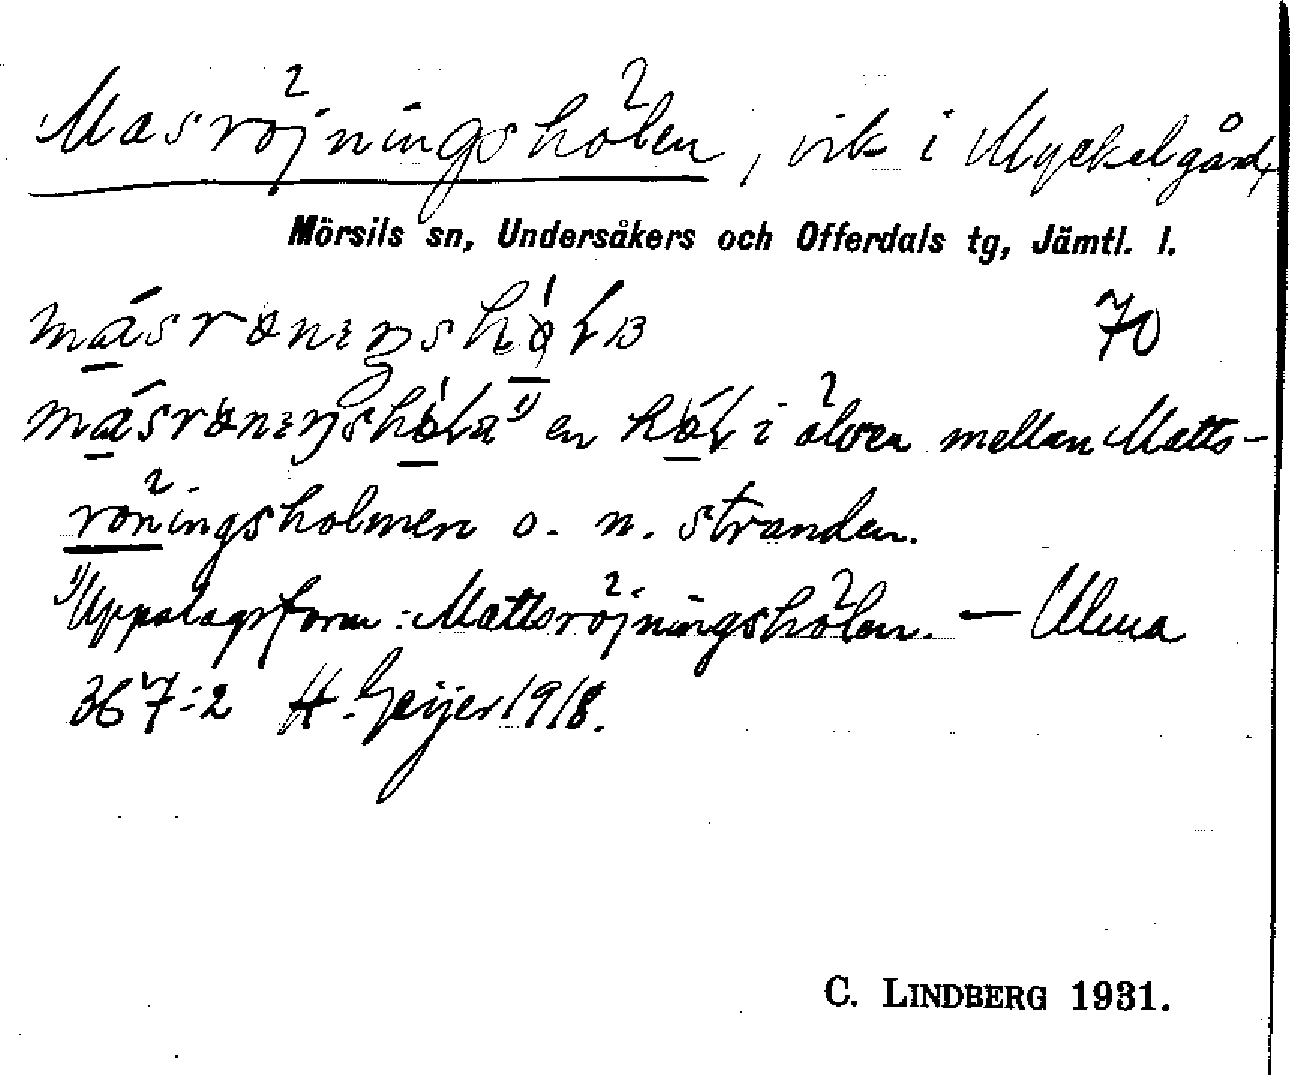 Masröjningshölen, vik i Myckelgård,
Mörsils sn, Undersåkers och Offerdals tg, Jämtl. l.
70
en i älven mellan Matts-
röningsholmen o. n. stranden.
1) Uppslagsform: Mattsröjningshölen. — Ulma
367:2 H. Geijer 1918.
C. LINDBERG 1931.